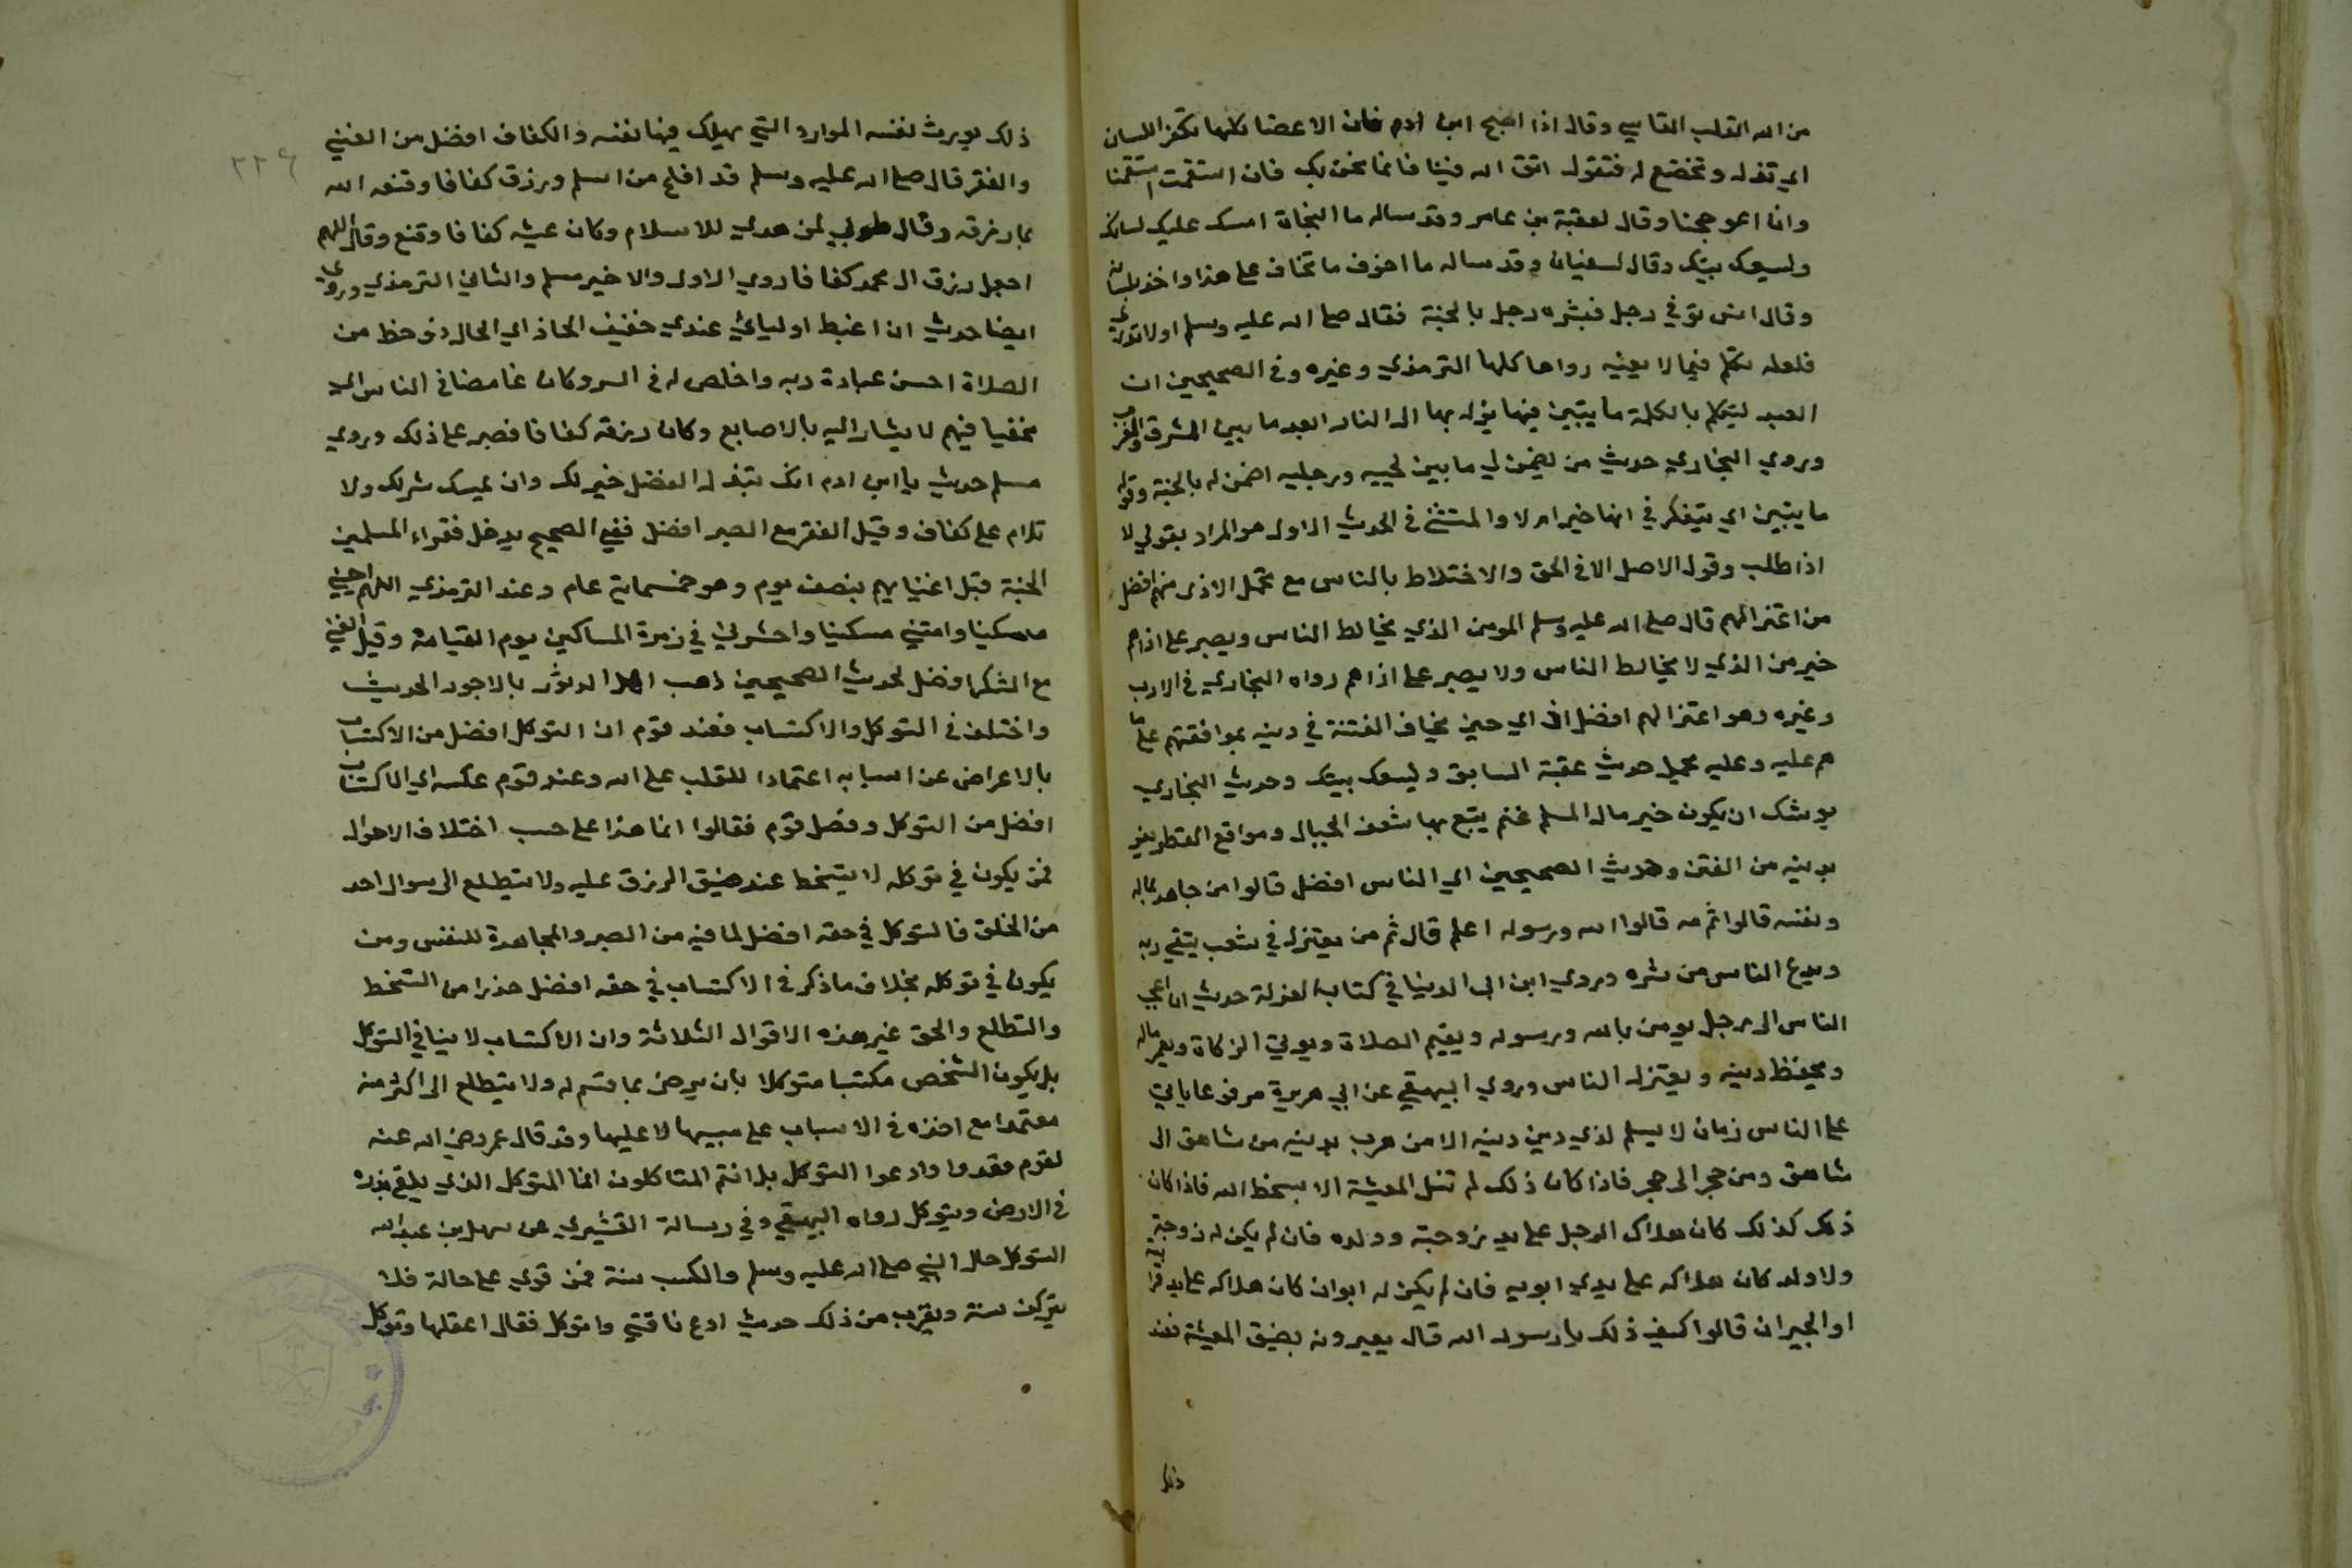 من الله القلب القاسي وقال اذا اصبح ابن ادم فان الاعضا كلها تكفر اللسان
اي تذل وتخضع له فتقول اتق الله فينا فانما نحن بك فان استقمت استقمنا
وان اعوججنا وقال لعقبة بن عامر وقد ساله ما النجاة امسك عليك لسانك
وليسعك بيتك وقال لسفيان وقد ساله ما اخوف ما تخاف على هذا واخذ بلسانه
وقال انس توفي رجل فبشره رجل بالجنة فقال صلى الله عليه وسلم اولا تدري
فلعله تكلم فيما لا يعنيه رواها كلها الترمذي وغيره وفي الصحيحين ان
العبد ليتكلم بالكلمة ما يتبين فيها يزل بها الى النار ابعد ما بين المشرق والمغرب
وروي البخاري حديث من يضمن لي ما بين لحييه ورجليه اضمن له بالجنة وقوله
ما يتبين اي يتفكر في انها خير ام لا والمستثنى في الحديث الاول هو المراد بقولي لا
اذا طلب وقول الاصل الا في الحق والاختلاط بالناس مع تحمل الاذى منهم افضل
من اعتزالهم قال صلى الله عليه وسلم المومن الذي يخالط الناس ويصبر على اذاهم
خير من الذي لا يخالط الناس ولا يصبر على اذاهم رواه البخاري في الادب
وغيره وهو اعتزالهم افضل ان اي حين يخاف الفتنة في دينه بموافقتهم على ما
هم عليه وعليه يحمل حديث عقبة السابق وليسعك بيتك وحديث البخاري
يوشك ان يكون خير مال المسلم غنم يتبع بها شعف الجبال ومواقع القطر يفر
بدينه من الفتن وحديث الصحيحين اي الناس افضل قالوا من جاهد بماله
ونفسه قالوا ثم مه قالوا الله ورسوله اعلم قال ثم من يعتزل في شعب يتقي ربه
ويدع الناس من شره وروي ابن ابي الدنيا في كتاب العزلة حديث ان اعجب
الناس الى رجل يومن بالله ورسوله ويقيم الصلاة ويوتي الزكاة ويعمر ماله
ويحفظ دينه ويعتزل الناس وروي البيهقي عن ابي هريرة مرفوعا ياتي
على الناس زمان لا يسلم لذي دين دينه الا من هرب بدينه من شاهق الى
شاهق ومن حجر الى حجر فاذا كان ذلك لم تنل المعيشة الا بسخط الله فاذا كان
ذلك كذلك كان هلاك الرجل على يد زوجته وولده فان لم يكن له زوجة
ولا ولد كان هلاكه على يدي ابويه فان لم يكن له ابوان كان هلاكه على يد قرابته
او الجيران قالوا كيف ذلك يا رسول الله قال يعيرونه بضيق المعيشة فعند
ذلك
٢٢٦
ذلك يورث نفسه الموارد التي يهلك فيها نفسه والكفاف افضل من الغني
والفقر قال صلى الله عليه وسلم قد افلح من اسلم ورزق كفافا وقنعه الله
بما رزقه وقال طوبي لمن هدي للاسلام وكان عيشه كفافا وقنع وقال اللهم
اجعل رزق ال محمد كفافا روي الاول والاخير مسلم والثاني الترمذي وروى
ايضا حديث ان اغبط اوليائي عندي خفيف الحاذ اي الحال ذو حظ من
الصلاة احسن عبادة ربه واخلص له في السر وكان غامضا في الناس اي
مخفيا فيهم لا يشار اليه بالاصابع وكان رزقه كفافا فصبر على ذلك وروي
مسلم حديث يا ابن ادم انك تبذل الفضل خير لك وان تمسك شر لك ولا
تلام على كفاف وقيل الفقر مع الصبر افضل ففي الصحيح يدخل فقراء المسلمين
الجنة قبل اغنيايهم بنصف يوم وهو خمسماية عام وعند الترمذي اللهم احيني
مسكينا وامتني مسكينا واحشرني في زمرة المساكين يوم القيامة وقيل الغني
مع الشكر افضل لحديث الصحيحين ذهب اهل الدثور بالاجور الحديث
واختلف في التوكل والاكتساب فعند قوم ان التوكل افضل من الاكتساب
بالاعراض عن اسبابه اعتمادا للقلب على الله وعند قوم عكسه اي الاكتساب
افضل من التوكل وفصل قوم فقالوا انما هذا على حسب اختلاف الاحوال
فمن يكون في توكله لا يتسخط عند ضيق الرزق عليه ولا يتطلع الى سوال احد
من الخلق فالتوكل في حقه افضل لما فيه من الصبر والمجاهدة للنفس ومن
يكون في توكله بخلاف ما ذكر في الاكتساب في حقه افضل حذرا من التسخط
والتطلع والحق غير هذه الاقوال الثلاثة وان الاكتساب لا ينافي التوكل
بل يكون الشخص مكتسبا متوكلا بان يرضى بما قسم له ولا يتطلع الى اكثر منه
معتمدا مع اخذه في الاسباب على مسببها لا عليها وقد قال عمر رضي الله عنه
لقوم قعدوا وادعوا التوكل بل انتم المتاكلون انما المتوكل الذي يلقي بذره
في الارض ويتوكل رواه البيهقي وفي رسالة القشيري عن سهل بن عبد الله
التوكل حال النبي صلى الله عليه وسلم والكسب سنة فمن قوي على حاله فلا
يتركن سنة ويقرب من ذلك حديث ادع ناقتي واتوكل فقال اعقلها وتوكل